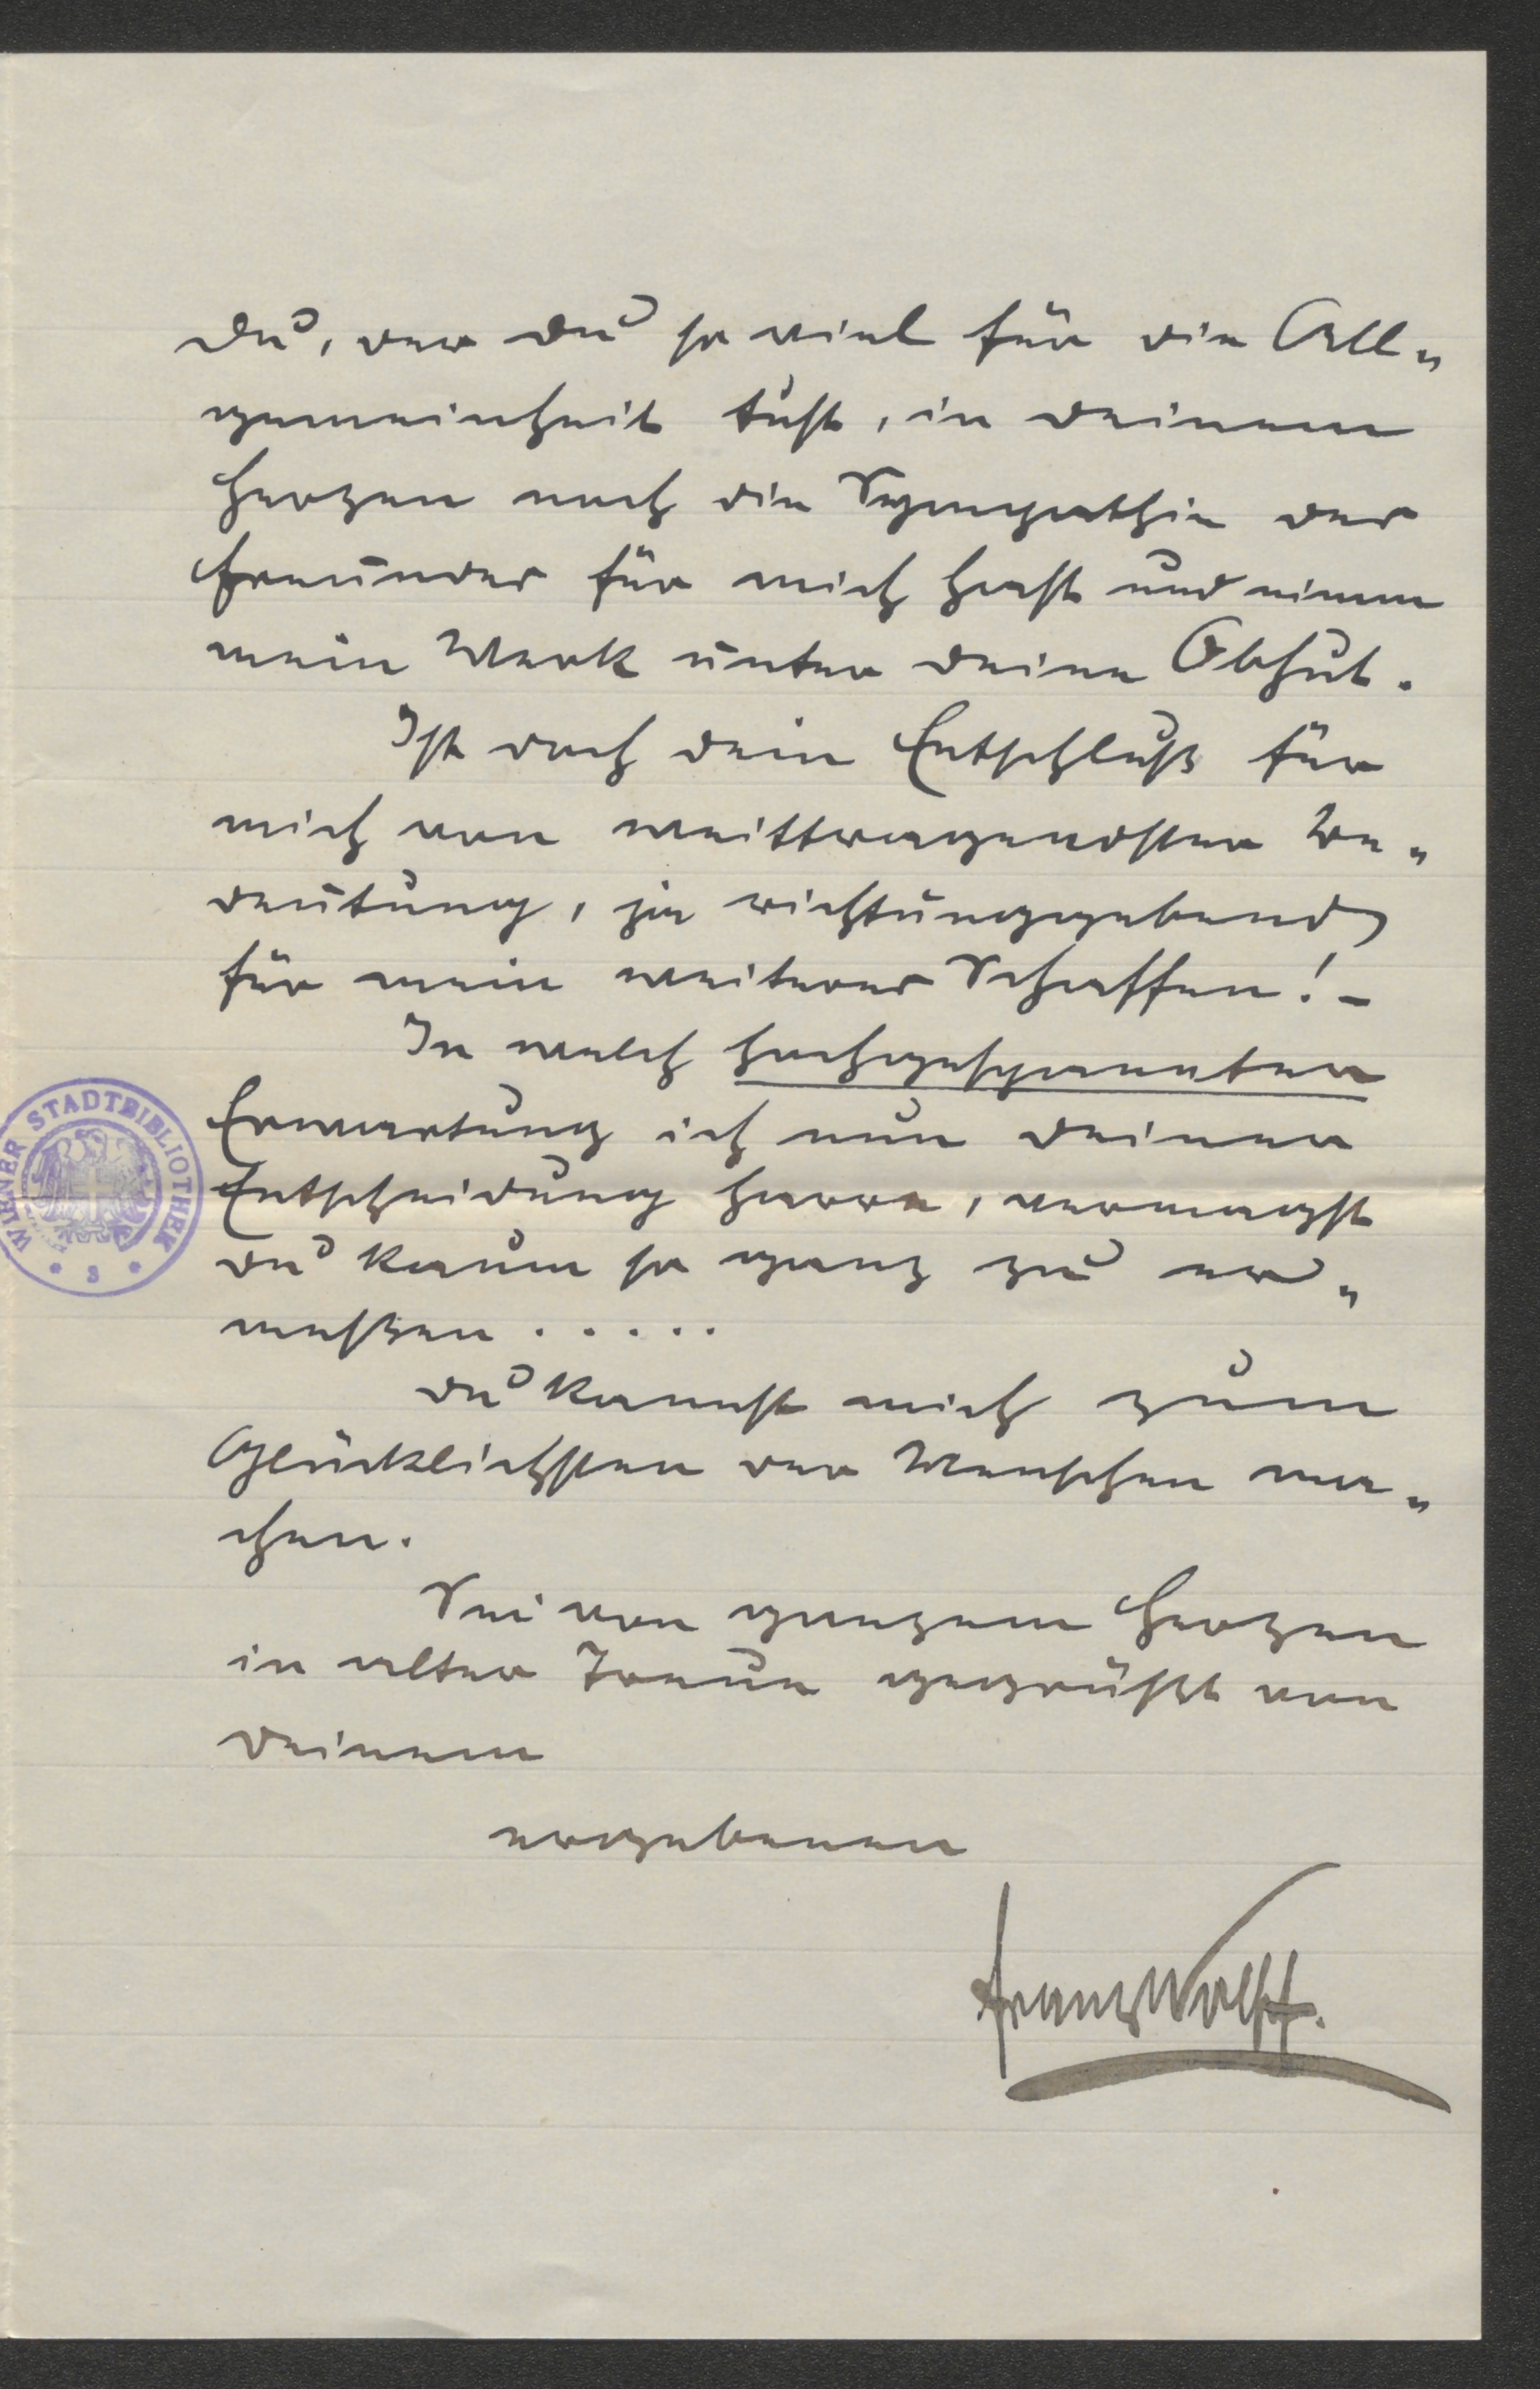 Du, der Du so viel für die All-
gemeinheit tust, in deinem
Herzen noch die Sympathie des
Freundes für mich hast und nimm
mein Werk unter deine Obhut.
Ist doch dein Entschluß für
mich von weittragendster Be-
deutung, ja richtunggebend
für mein weiteres Schaffen! –
In welch hochgespannter
Erwartung ich nun deiner
Entscheidung harre, vermagst
du kaum so ganz zu er-
meßen . . . . .
Du kannst mich zum
Glücklichsten der Menschen ma-
chen.
Sei von ganzem Herzen
in alter Treue gegrüßt von
deinem
ergebenen
Franz Wolff.
WIENER STADTBIBLIOTHEK
* 3 *